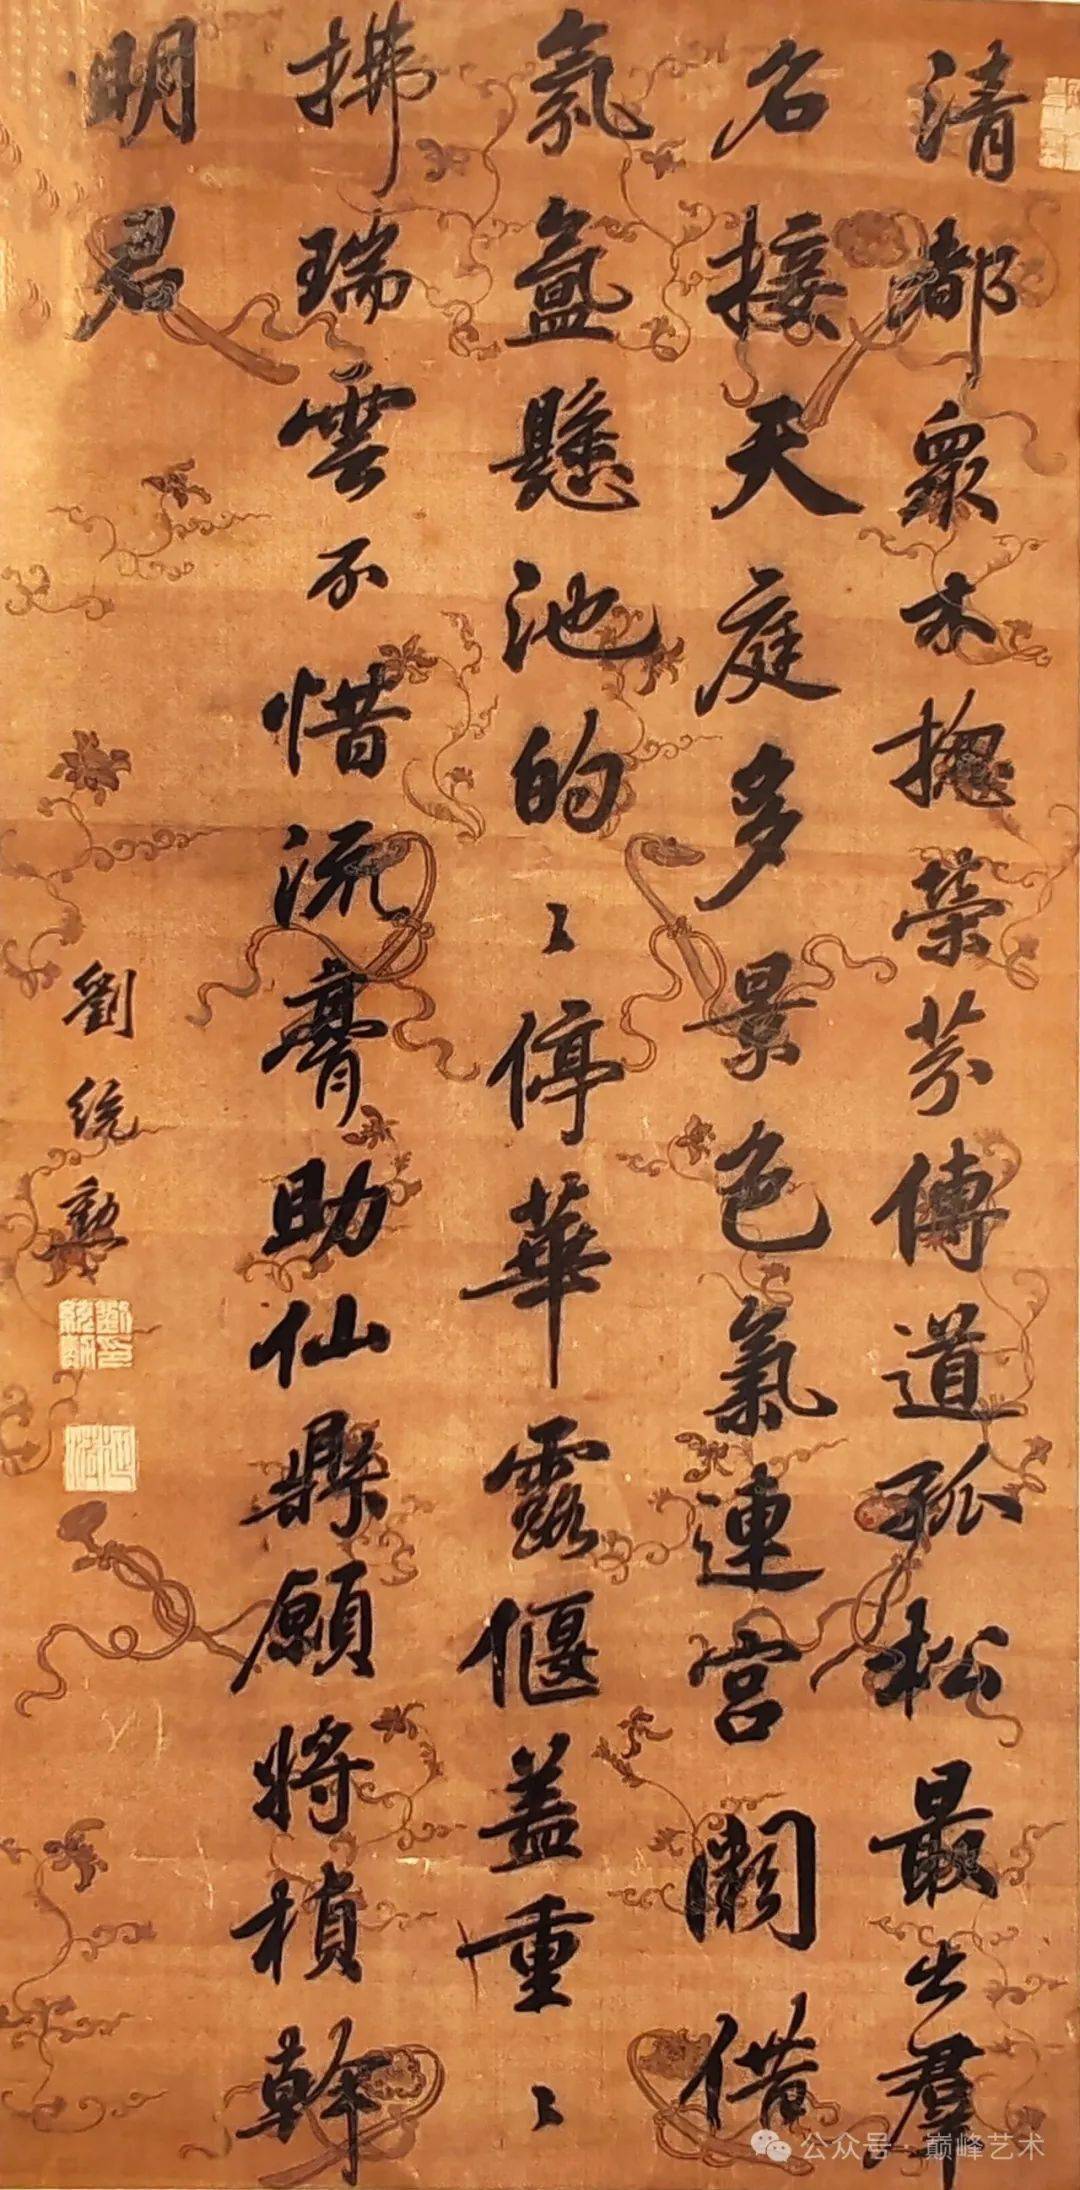 清都衆木揔榮芬傳道孤松最出羣
名接天庭多景色氣連宮闕借
氛氲懸池的〻停華露偃蓋重〻
拂瑞雲不惜流膏助仙鼎願將楨幹
明君
劉統勲
公众号·巅峰艺术